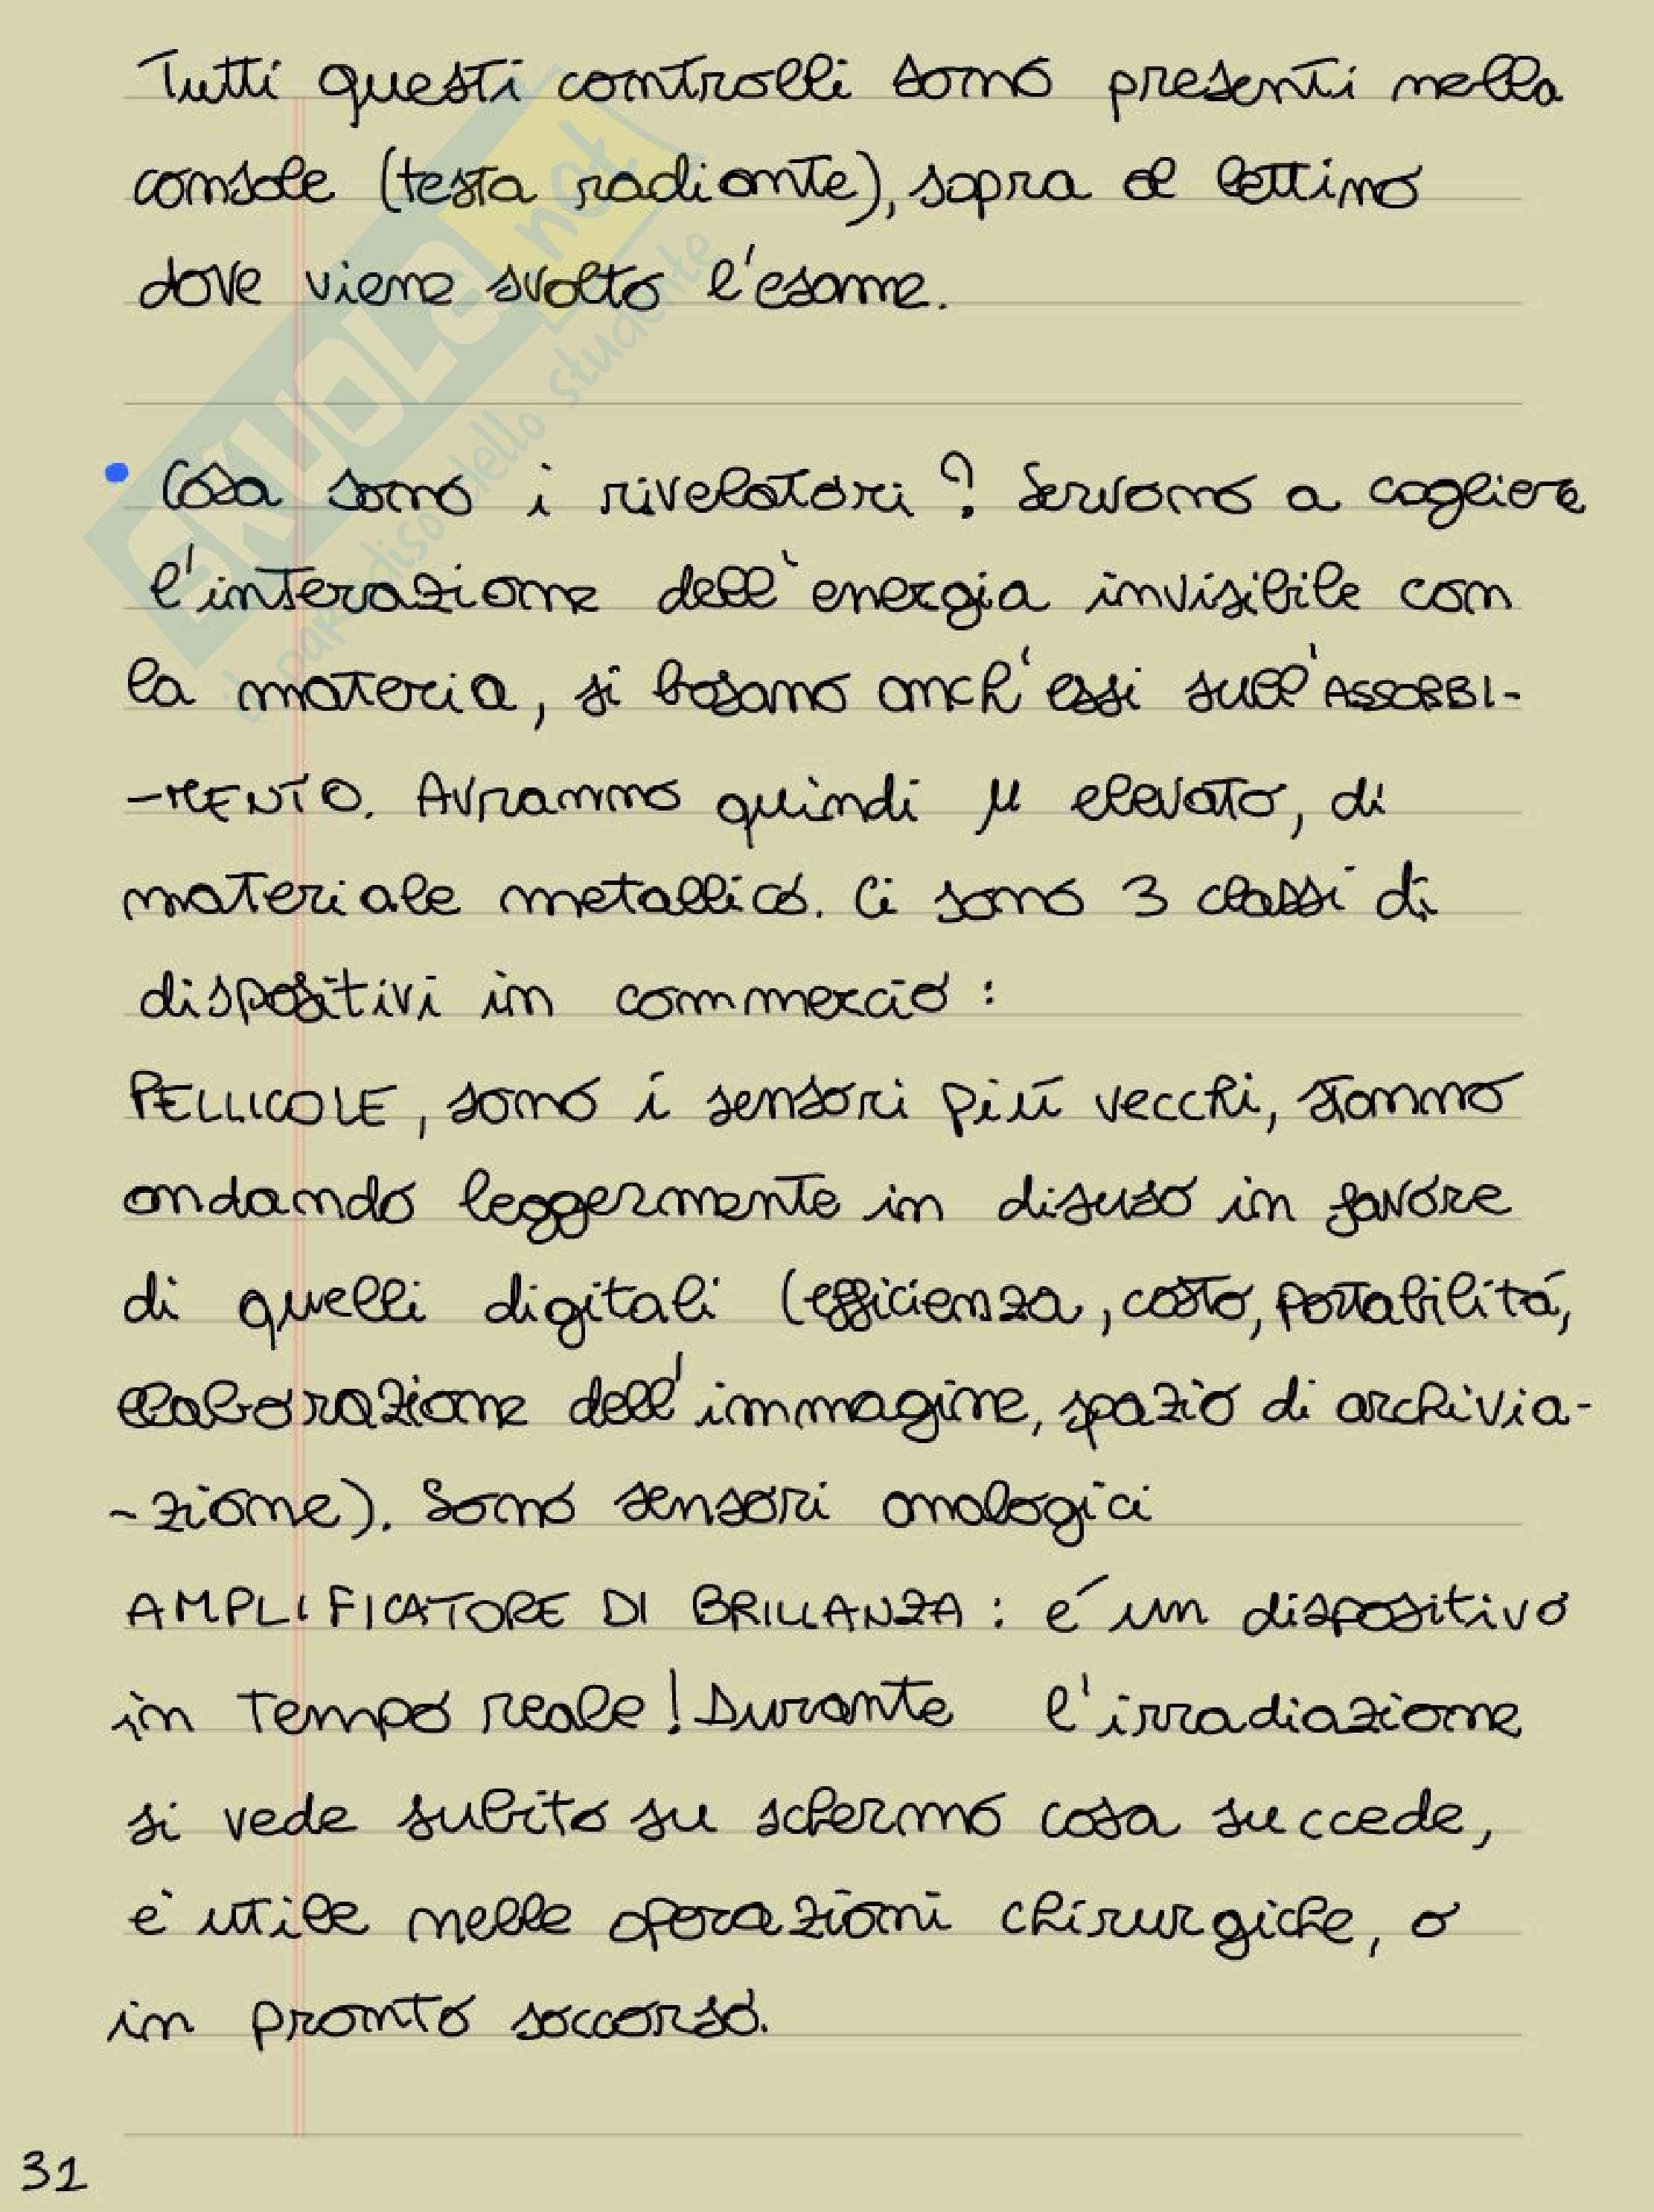 Tutti questi controlli sono presenti nella
console (testa radiante), sopra al lettino
dove viene svolto l'esame.
• Cosa sono i rivelatori? Servono a cogliere
l'interazione dell'energia invisibile con
la materia, si basano anch'essi sull'ASSORBI-
-MENTO. Avranno quindi μ elevato, di
materiale metallico. Ci sono 3 classi di
dispositivi in commercio:
PELLICOLE, sono i sensori più vecchi, stanno
andando leggermente in disuso in favore
di quelli digitali (efficienza, costo, portabilitá,
elaborazione dell'immagine, spazio di archivia-
-zione). Sono sensori analogici
AMPLIFICATORE DI BRILLANZA: é un dispositivo
in tempo reale! Durante l'irradiazione
si vede subito su schermo cosa succede,
è utile nelle operazioni chirurgiche, o
in pronto soccorso.
31
SKUOLA.net
il paradiso dello studente